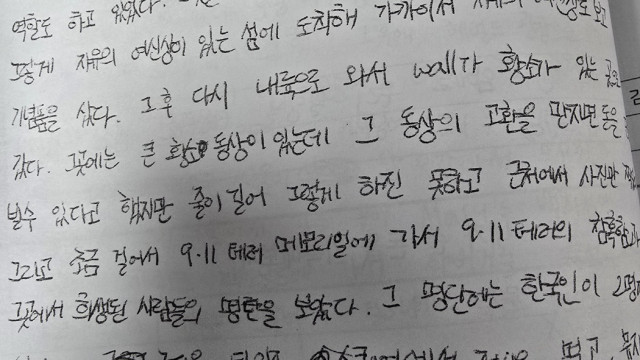 역할도 하고 있었다.
그렇게 자유의 여신상이 있는 섬에 도착해 가까이서 자유의
기념품을 샀다. 그 후 다시 내륙으로 와서 wall가 황소가 있는 곳
갔다. 그곳에는 큰 황소 동상이 있는데 그 동상의 고환을 만지면 돈을
벌수 있다고 했지만 줄이 길어 그렇게 하진 못하고 근처에서 사진만
그리고 조금 걸어서 9.11 테러 메모리얼에 가서 9.11 테러의 참혹함
그곳에서 희생된 사람들의 명단을 보았다. 그 명단에는 한국인이 2명
먹고